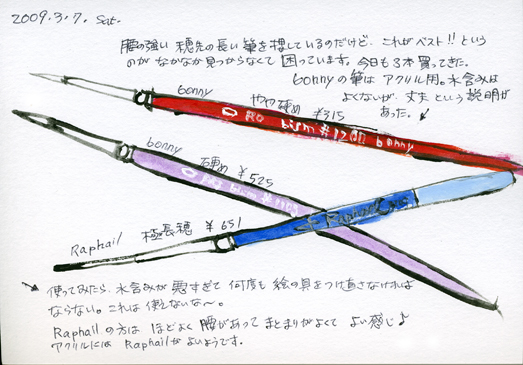 2009.3.7. Sat.
腰の強い 穂先の長い 筆を探しているのだけど、これがベスト!! という
のが なかなか見つからなくて 困っています。今日も3本 買ってきた。
bonnyの筆は アクリル用。水含みは
よくないが、丈夫という説明が
あった。
bonny やや硬め ¥315
bism #1200 bonny
bonny 硬め ¥525
bism #1100
Raphail 極長穂 ¥651
Raphael
使ってみたら、水含みが 悪すぎて 何度も 絵の具をつけなさなければ
ならない。これは 使えないな〜。
Raphailの方は ほどよく 腰があって まとまりがよくて よい感じ♪
アクリルには Raphailが よいようです。